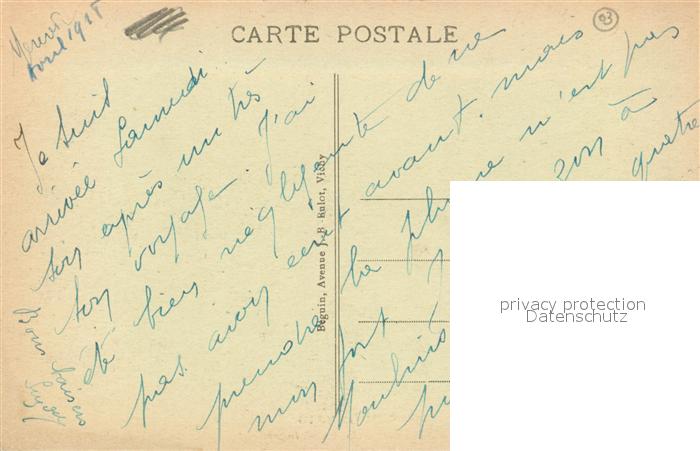 avril 1918
CARTE POSTALE
93
Je suis
arrivée Samedi
soir après un très
bon voyage. J'ai
été bien négligente de ne
pas avoir écrit avant. mais
prendre la plume n'est pas
mon fort
Moulins
quatre
Bons baisers
Béguin, Avenue J.-B. Bulot, Vichy
privacy protection
Datenschutz